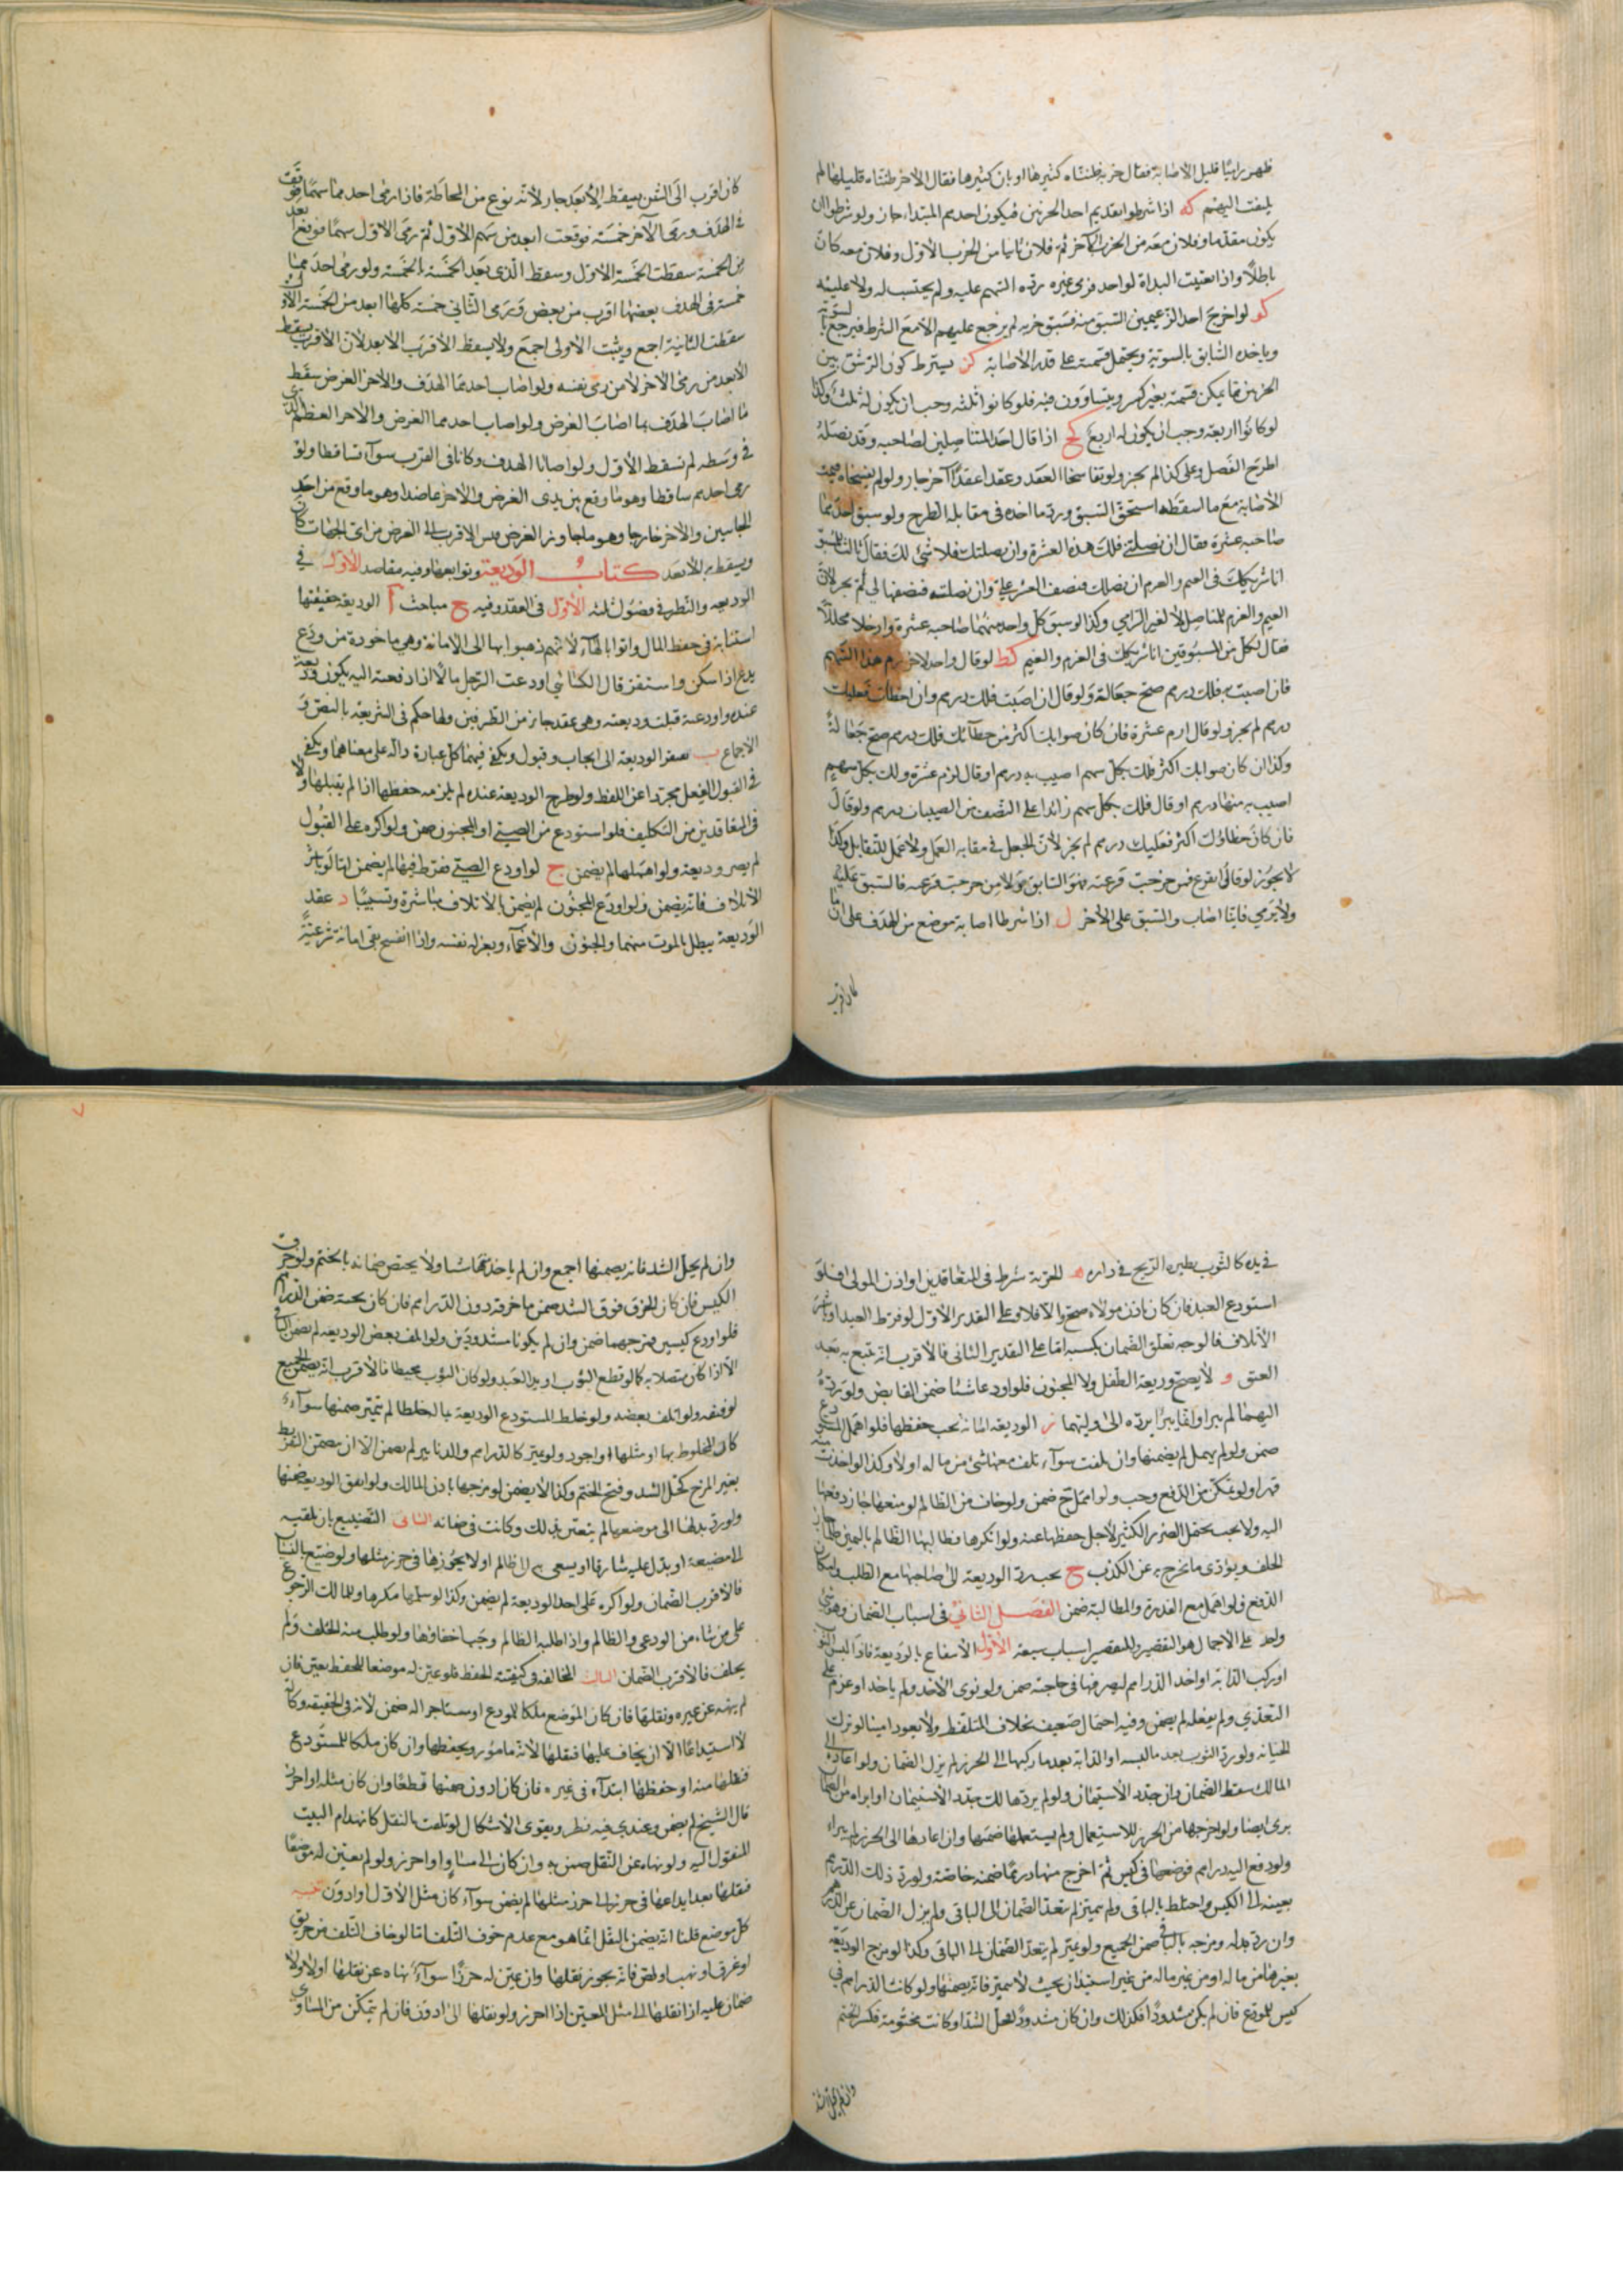 ظهر راميا قليل الاصابة فقال حزبه ظنناه كثيرها او بان كثيرها فقال الاخر ظنناه قليلها لم
يلتفت اليهم كه اذا شرطوا تقديم احد الحزبين فيكون احدهم المبتداء جاز ولو شرطوا ان
يكون مقدما وفلان معه من الحزب الآخر ثم فلان ثانيا من الحزب الاول وفلان معه كان
باطلا واذا تعينت البداة لواحد فرمى غيره رد السهم عليه ولم يحتسب له ولا عليه
كو لو اخرج احد الزعيمين السبق منه فسبق حزبه لم يرجع عليهم الا مع الشرط فيرجع بالسوية
وياخذه السابق بالسوية ويحتمل قسمته على قدر الاصابة كز يشترط كون الرشق بين
الحزبين مما يمكن قسمته بغير كسر ويتساوون فيه فلو كانوا ثلثه وجب ان يكون له ثلث وكذا
لو كانوا اربعة وجب ان يكون له اربع كح اذا قال احد المتناضلين لصاحبه وقد نضله
اطرح الفضل وعلي كذا لم يجز ولو تفاسخا العقد وعقدا عقدا آخر جاز ولو لم يفسخاه فتمت
الاصابة مع ما اسقطه استحق السبق ورد ما اخذه في مقابلة الطرح ولو سبق احدهما
صاحبه عشرة فقال ان نضلتني فلك هذه العشرة وان نضلتك فلا شئ لك فقال ثالث للمسبق
انا شريكك في الغنم والغرم ان نضلك فنصف العشر علي وان نضلته فنصفها لي لم يجز لان
الغنم والغرم للمناضل لا لغير الرامي وكذا لو سبق كل واحد منهما صاحبه عشرة وادخلا محللا
فقال لكل من المسبوقين انا شريكك في الغرم والغنم كط لو قال واحد لاخر ارم هذا السهم
فان اصبت به فلك درهم صح جعالة ولو قال ان اصبت فلك درهم وان اخطات فعليك
درهم لم يجز ولو قال ارم عشرة فان كان صوابك اكثر من خطائك فلك درهم صح جعالة
وكذا ان كان صوابك اكثر فلك بكل سهم اصيب به درهم او قال ارم عشرة ولك بكل سهم
اصيب به منها درهم او قال فلك بكل سهم زائدا على النصف من المصيبات درهم ولو قال
فان كان خطاؤك اكثر فعليك درهم لم يجز لان الجعل في مقابله العمل ولا عمل للتقابل وكذا
لا يجوز لو قال نقرع فمن خرجت قرعته فهو السابق ولا من خرجت قرعته فالسبق عليه
ولا يرمي فايّنا اصاب والسبق على الاخر ل اذا شرطا اصابة موضع من الهدف على ان ما
كان اقرب
كان اقرب الى الشن يسقط الابعد جاز لانه نوع من المحاطة فاذا رمى احدهما سهما فوقعت
في الهدف ورمى الآخر خمسة فوقعت ابعد من سهم الاول ثم رمى الاول سهما فوقع ابعد
من الخمسة سقطت الخمسة الاول وسقط الذي بعد الخمسة بالخمسة ولو رمى احدهما
خمسة في الهدف بعضها اقرب من بعض ورمى الثاني خمسة كلها ابعد من الخمسة الاول
سقطت الثانية اجمع ويثبت الاولى اجمع ولا يسقط الاقرب الابعد لان الاقرب يسقط
الابعد من رمي الاخر لا من رمي نفسه ولو اصاب احدهما الهدف والاخر الغرض سقط
ما اصاب الهدف بما اصاب الغرض ولو اصاب احدهما الغرض والاخر العظم الذي
في وسطه لم تسقط الاول ولو اصابا الهدف وكانا في القرب سواء تساقطا ولو
رمى احدهم ساقطا وهو ما وقع بين يدي الغرض والاخر عاضدا وهو ما وقع من احد
الجانبين والاخر خارجا وهو ما جاوز الغرض قيس الاقرب الى الغرض من اي الجهات كان
ويسقط به الابعد كتاب الوديعة وتوابعها وفيه مقاصد الاول في
الوديعه والنظر في فصول ثلثه الاول في العقد وفيه ح مباحث ا الوديعة حقيقتها
استنابة في حفظ المال واتوا بالهاء لانهم ذهبوا بها الى الامانة وهي ماخوذة من ودع
يدع اذا سكن واستقر قال الكسائي اودعت الرجل مالا اذا دفعته اليه يكون وديعة
عنده واودعته قبلت وديعته وهي عقد جائز من الطرفين ولها حكم في الشريعة بالنص و
الاجماع ب تفتقر الوديعة الى ايجاب وقبول ويكفي فيهما كل عبارة دالة على معناهما ويكفي
في القبول الفعل مجردا عن اللفظ ولو طرح الوديعة عنده لم يلزمه حفظها اذا لم يقبلها ولا
في المتعاقدين من التكليف فلو استودع من الصبي او المجنون ضمن ولو اكره على القبول
لم يصر وديعة ولو اهملها لم يضمن ج لو اودع الصبي ففرط فيها لم يضمن اما لو باشر
الاتلاف فانه يضمن ولو اودع المجنون لم يضمن بالاتلاف مباشرة وتسبيبا د عقد
الوديعة يبطل بالموت منهما والجنون والاغماء وبعزله نفسه واذا انفسخ بقى امانة شرعية
في يده كالثوب يطيره الريح في داره ه الحرية شرط في المتعاقدين او اذن المولى فلو
استودع العبد فان كان باذن مولاه صح والا فلا وعلى التقدير الاول لو فرط العبد او باشر
الاتلاف فالوجه تعلق الضمان بكسبه اما على التقدير الثاني فالاقرب انه يتبع به بعد
العتق و لا يصح وديعة الطفل ولا المجنون فلو اودعا شئا ضمن القابض ولو رده
اليهما لم يبرا وانما يبرا برده الى وليهما ز الوديعه امانة يجب حفظها فلو اهمل المستودع
ضمن ولو لم يهمل لم يضمنها وان تلفت سواء تلف معها شئ من ماله او لا وكذا لو اخذت منه
قهرا ولو تمكن من الدفع وجب ولو اهمل ح ضمن ولو خاف من الظالم لو منعها جاز دفعها
اليه ولا يجب تحمل الضرر الكثير لاجل حفظها عنه ولو انكرها فطالبها الظالم باليمين ظلما جاز
الحلف ويورّى ما يخرج به عن الكذب ح يجب رد الوديعة الى صاحبها مع الطلب وامكان
الدفع فلو اهمل مع القدرة والمطالبة ضمن الفصل الثاني في اسباب الضمان وهو شئ
واحد على الاجمال هو التقصير وللتقصير اسباب سبعة الاول الانتفاع بالوديعة فاذا لبس الثوب
او ركب الدابة او اخذ الدراهم ليصرفها في حاجته ضمن ولو نوى الاخذ ولم ياخذ او عزم على
التعدي ولم يفعله لم يضمن وفيه احتمال ضعيف بخلاف الملتقط ولا يعود امينا لو ترك
الخيانه ولو رد الثوب بعد ما لبسه او الدابة بعد ما ركبها الى الحرز لم يزل الضمان ولو اعاده الى
المالك سقط الضمان وان جدد الاستيمان ولو لم يردها لكن جدد الاستيمان او ابراه من الضمان
برئ ايضا ولو اخرجها من الحرز للاستعمال ولم يستعملها ضمنها وان اعادها الى الحرز لم يبراء
ولو دفع اليه دراهم فوضعها في كيس ثم اخرج منها درهما ضمنه خاصة ولو رد ذلك الدرهم
بعينه الى الكيس واختلط بالباقي ولم يتميز لم يتعد الضمان الى الباقي ولم يزل الضمان عن الدرهم
وان رد بدله ومزجه بالباقي ضمن الجميع ولو تميز لم يتعد الضمان الى الباقي وكذا لو مزج الوديعة
بغيرها من ماله او من غير ماله من غير استيذان بحيث لا يتميز فانه يضمنها ولو كانت الدراهم في
كيس للمودع فان لم يكن مشدودا فكذلك وان كان مشدودا فحل الشد او كانت مختومة فكسر الختم
وان لم يحل الشد
وان لم يحل الشد فانه يضمنها اجمع وان لم ياخذ منها شئا ولا يختص ضمانه بالختم ولو خرق
الكيس فان كان الخرق فوق الشد ضمن ما خرقه دون الدراهم فان كان تحته ضمن الدراهم
فلو اودع كيسين فمزجهما ضمن وان لم يكونا مشدودين ولو اتلف بعض الوديعه لم يضمن الباقي
الا اذا كان متصلا به كما لو قطع الثوب او يد العبد ولو كان الثوب مخيطا فالاقرب انه يضمن الجميع
لو فتقه ولو اتلف بعضه ولو خلط المستودع الوديعة بماله خلطا لم يتميز ضمنها سواء
كان المخلوط بها او مثلها او اجود ولو تميز كالدراهم والدنانير لم يضمن الا ان يتضمن التفريط
بغير المزج كحل الشد وفتح الختم وكذا لا يضمن لو مزجها باذن المالك ولو انفق الوديعه ضمنها
ولو رد بدلها الى موضعها لم يتعين بذلك وكانت في ضمانه الثاني التضييع بان يلقيه
الى مضيعه او يدل عليه سارقا او يسعى به الى ظالم او لا يحوزها في حرز مثلها ولو ضيع بالنسيان
فالاقرب الضمان ولو اكره على اخذ الوديعة لم يضمن وكذا لو سلمها مكرها وللمالك الرجوع
على من شاء من المودع والظالم واذا طلبها الظالم وجب اخفاؤها ولو طلب منه الحلف ولم
يحلف فالاقرب الضمان الثالث المخالفه في كيفيته الحفظ فلو عين له موضعا للحفظ يعين فان
لم ينهه عن غيره ونقلها فان كان الموضع ملكا للمودع او مستاجرا له ضمن لانه في الحقيقه وكالة
لا استيداعا الا ان يخاف عليها فنقلها لانه مامور بحفظها وان كان ملكا للمستودع
فنقلها منه او حفظها ابتداء في غيره فان كان ادون ضمنها قطعا وان كان مثله او احرز
قال الشيخ لم يضمن وعندي فيه نظر ويقوى الاشكال لو تلفت بالنقل كانهدام البيت
المنقول اليه ولو نهاه عن النقل ضمن به وان كان الى مساو او احرز ولو لم يعين له موضعا
فنقلها بعد ايداعها في حرز الى حرز مثلها لم يضمن سواء كان مثل الاول او ادون تنبيه
كل موضع قلنا انه يضمن بالنقل انما هو مع عدم خوف التلف اما لو خاف التلف من حريق
او غرق او نهب او لص فانه يجوز نقلها وان عين له حرزا سواء نهاه عن نقلها او لا ولا
ضمان عليه اذا نقلها الى مثل المعين اذا احرز ولو نقلها الى ادون فان لم يتمكن من المساوى